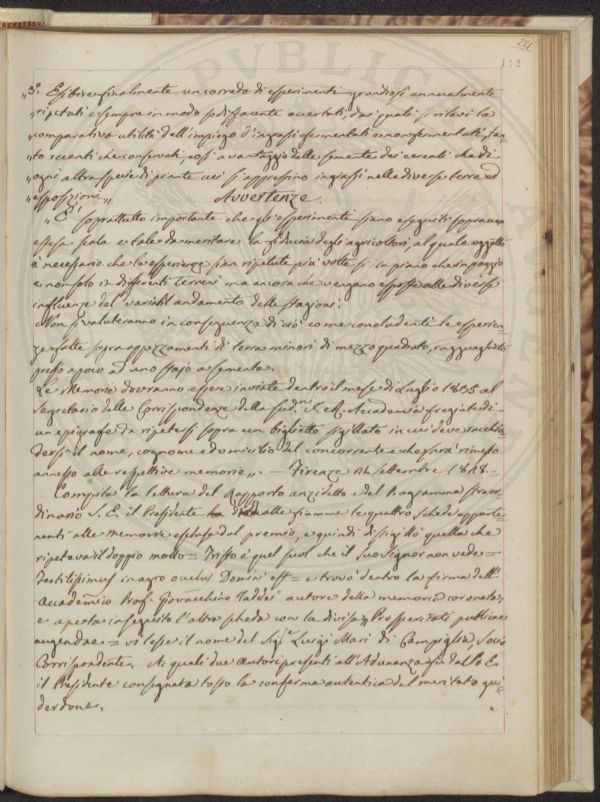 221
112
„3°. Esibire finalmente un corredo di esperimenti grandiosi annualmente
„ripetuti e sempre in modo sodisfacente accertati, dai quali si rilevi la
„comparativa utilità dell'impiego d'ingrassi fermentati e non fermentati, tan=
„to recenti che conservati, così a vantaggio delle semente dei cereali che di
„ogni altra specie di piante cui si appressino ingrassi nelle diverse terre ed
„esposizioni„ Avvertenze.
„E' soprattutto importante che gli esperimenti siano eseguiti sopra una
estesa scala e tale da meritare la fiducia degli agricoltori, al quale oggetto
è necessario che le esperienze sien ripetute più volte sì in piano che in poggio
e non solo in differenti terreni ma ancora che vengano esposte alle diverse
influenze del variabil andamento delle stagioni.
Non si valuteranno in conseguenza di ciò come concludenti le esperien=
ze fatte sopra appezzamenti di terra minori di mezzo quadrato, ragguagliato
presso a poco ad uno stajo a sementa.
Le Memorie dovranno essere inviate dentro il mese di Luglio 1835 al
Segretario delle Corrispondenze della sud.ª I. e R. Accademia fregiate di
un'epigrafe da ripetersi sopra un biglietto sigillato in cui deve racchiu=
dersi il nome, cognome e domicilio del concorrente e che sarà rimesso
annesso alle respettive memorie„. — Firenze 14 Settembre 1828.=
Compita la lettura del Rapporto anzidetto e del Programma straor=
dinario S. E. il Presidente diede alle fiamme le quattro schede apparte=
nenti alle memorie escluse dal premio, e quindi disigillò quella che
ripeteva il doppio motto = Tristo è quel suol che il suo Signor non vede =
Fertilissimus in agro oculus Domini est = e trovò dentro la firma dell'
Accademico Prof. Giovacchino Taddei autore della memoria coronata;
e aperta in seguito l'altra scheda con la divisa Prosperitati publicae
augendae = vi lesse il nome del Sig.r Luigi Mari di Campiglia, Socio
Corrispondente. Ai quali due autori presenti all'Adunanza fu dall'S. E.
il Presidente consegnata tosto la conferma autentica del meritato gui=
derdone.